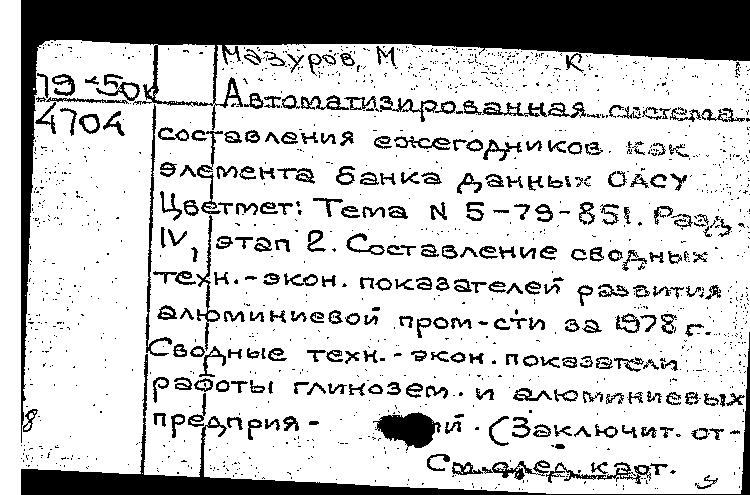 Мазуров, М К
79-50к Автоматизированная система
4704 составления ежегодников как
элемента банка данных ОАСУ
Цветмет: Тема N 5-79-851. Разд.
IV, этап 2. Составление сводных
техн.-экон. показателей развития
алюминиевой пром-сти за 1978 г.
Сводные техн.-экон. показатели
работы глинозем. и алюминиевых
предприя- ий. (Заключит. от-
См. след. карт.